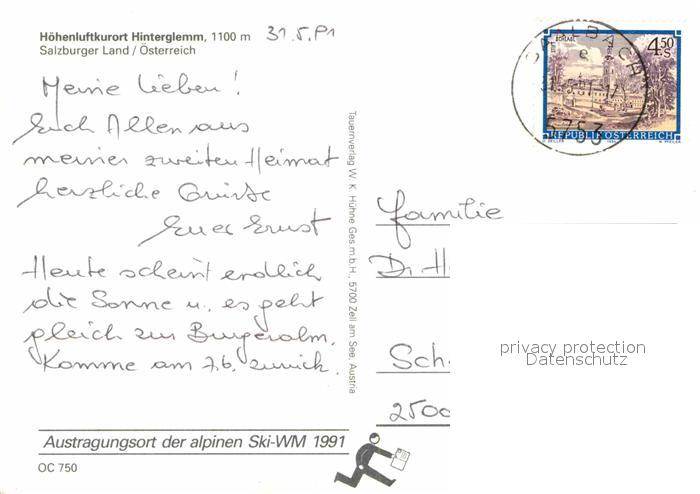 Höhenluftkurort Hinterglemm, 1100 m 31.5.91
Salzburger Land / Österreich
Meine Lieben!
Euch Allen aus
meiner zweiten Heimat
herzliche Grüsse
Euer Ernst
Heute scheint endlich
die Sonne u. es geht
gleich zur Burgeralm.
Komme am 7.6. zurück.
Austragungsort der alpinen Ski-WM 1991
OC 750
Tauernverlag W. K. Hühne Ges.m.b.H., 5700 Zell am See, Austria
SAALBACH
5753
STIFT
4.50 S
REPUBLIK ÖSTERREICH
Familie
Dr. H
Sch.
2500
privacy protection
Datenschutz